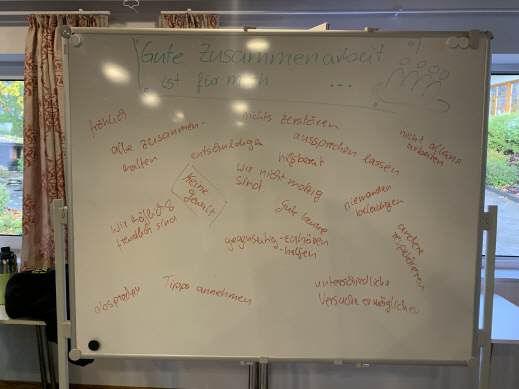 Gute Zusammenarbeit
ist für mich ...
fröhlich
alle zusammen-
halten
entschuldigen
nichts zerstören
aussprechen lassen
nicht alleine
arbeiten
hilfsbereit
Keine
Gewalt
wir nicht motzig
sind
Gute Laune
niemanden
beleidigen
wir höflich &
freundlich sind
gegenseitig - zuhören
- helfen
andere
respektieren
absprechen
Tipps annehmen
unterschiedliche
Versuche ermöglichen